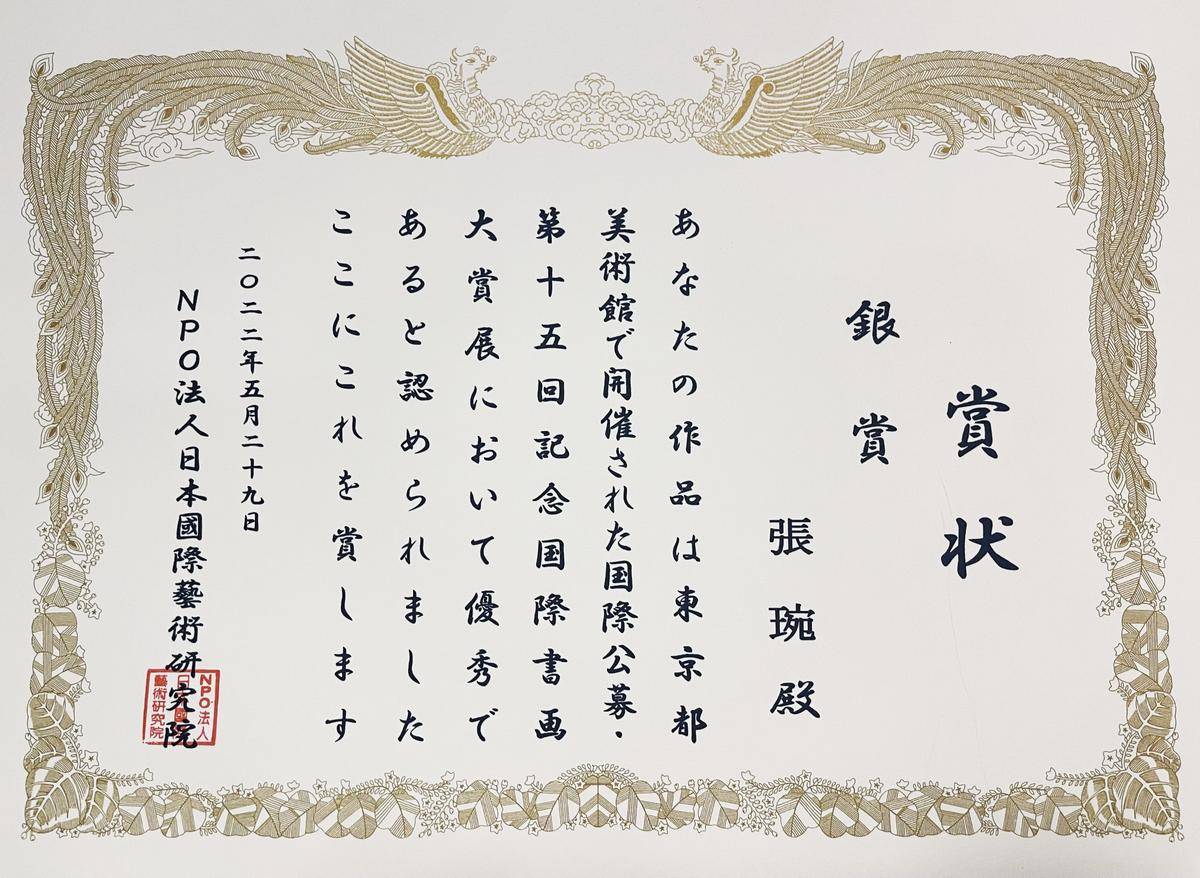 賞状
銀賞
張琬殿
あなたの作品は東京都
美術館で開催された国際公募・
第十五回記念国際書画
大賞展において優秀で
あると認められました
ここにこれを賞します
二〇二二年五月二十九日
NPO法人日本國際藝術研究院
NPO法人
日本國際
藝術研究院